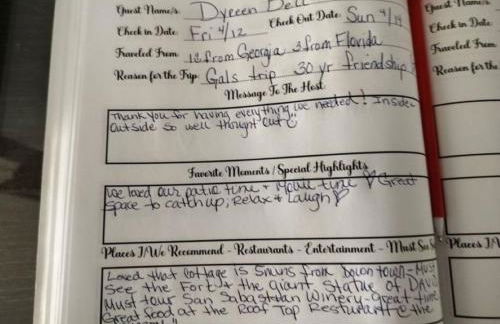 Guest Name/s: Dyreen Dell
Check in Date: Fri 4/12 Check Out Date: Sun 4/14
Traveled From: from Georgia 3 from Florida
Reason for the Trip: Gals trip 30 yr friendship
Message To The Host:
Thank you for having everything we needed! Inside-
outside so well thought out
Favorite Moments / Special Highlights
We loved our patio time + time ♡ Great
space to catch up, Relax + Laugh ♡
Places I/We Recommend - Restaurants - Entertainment - Must
Loved that cottage is 5 mins from Down town - Must
see the Fort + the giant Statue of DAVID
Must tour San Sabastian Winery - great time
Great food at the Roof Top Resturant @ the
Guest Name
Check in Date
Traveled From
Reason for the
Places I/